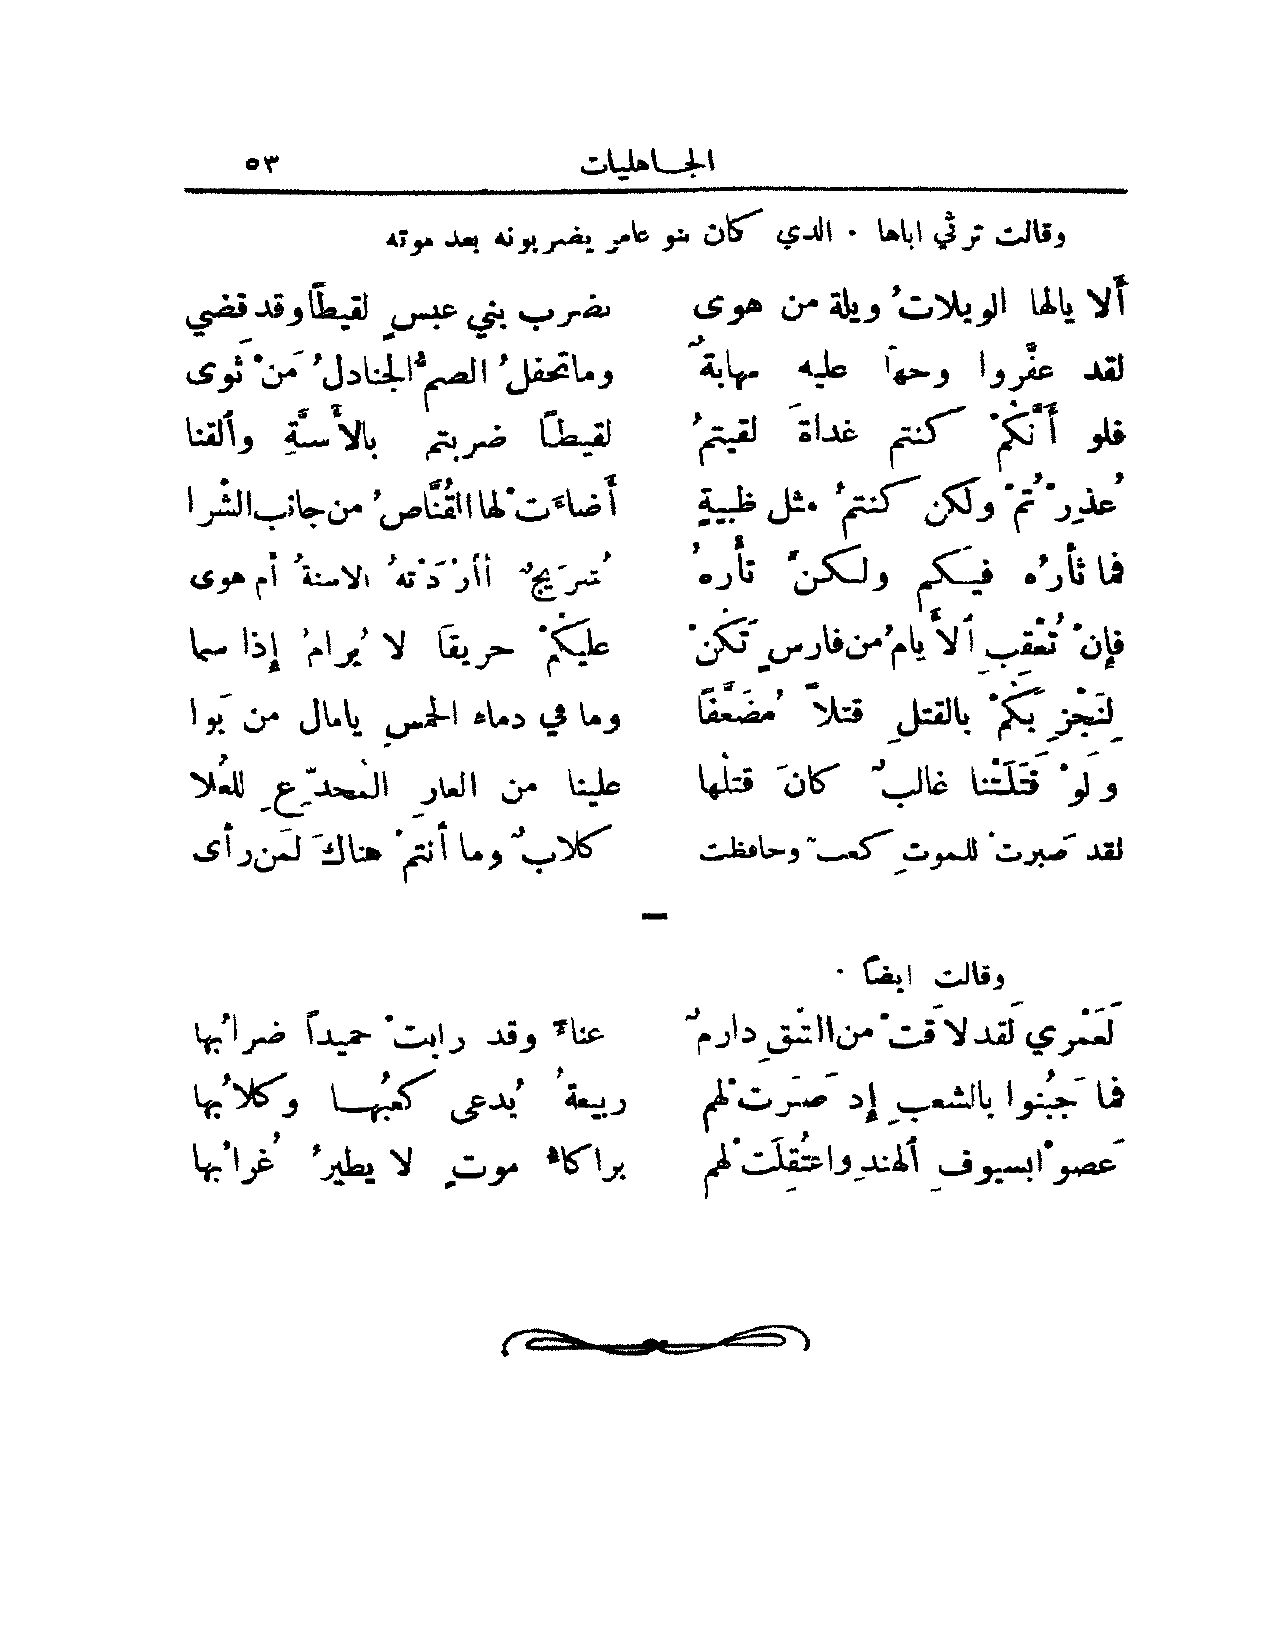 الجاهليات ٥٣
وقالت ترثي اباها · الذي كان بنو عامر يضربونه بعد موته
أَلا يالها الويلاتُ ويلة من هوى بضرب بني عبسٍ لقيطًا وقد قضي
لقد عفَّروا وجهًا عليه مهابةٌ وماتحفلُ الصمُّ الجنادلُ مَنْ ثوى
فلو أَنَّكمْ كنتم غداةَ لقيتمُ لقيطاً ضربتم بالأَسنَّةِ وألقنا
عُذِرْتُمْ ولكن كنتمُ مثل ظبيةٍ أَضاءَت لها القُنَّاصُ من جانب الشرا
فما ثأرُه فيكم ولكنَّ ثأرهُ شُريحٌ أأرْدَتْهُ الاسنةُ أم هوى
فإِنْ تُعْقِبِ ألأَيامُ من فارسٍ تَكُنْ عليكمْ حريقاً لا يُرامُ إذا سما
لِنَجْزِيَكمْ بالقتلِ قتلاً مُضَعَّفًا وما في دماء الحمسِ يامال من بَوا
وَلَوْ قَتَلَتْنا غالبٌ كانَ قتلُها علينا من العارِ المُجدِّعِ للعُلا
لقد صَبرتْ للموتِ كعبٌ وحافظت كلابٌ وما أنتمْ هناكَ لمَن رأى
وقالت ايضاً ·
لَعَمْري لَقد لاقَتْ من الشَّقِ دارمٌ عناءً وقد رابتْ حميداً ضرابُها
فما جَبُنوا بالشعبِ إِذ صَبَرَتْ لهم ربيعةُ يُدعى كعبُها وكلابُها
عَصوْا بسيوفِ ألهندِ واعتُقِلَتْ لهم براكاءُ موتٍ لا يطيرُ غُرابُها